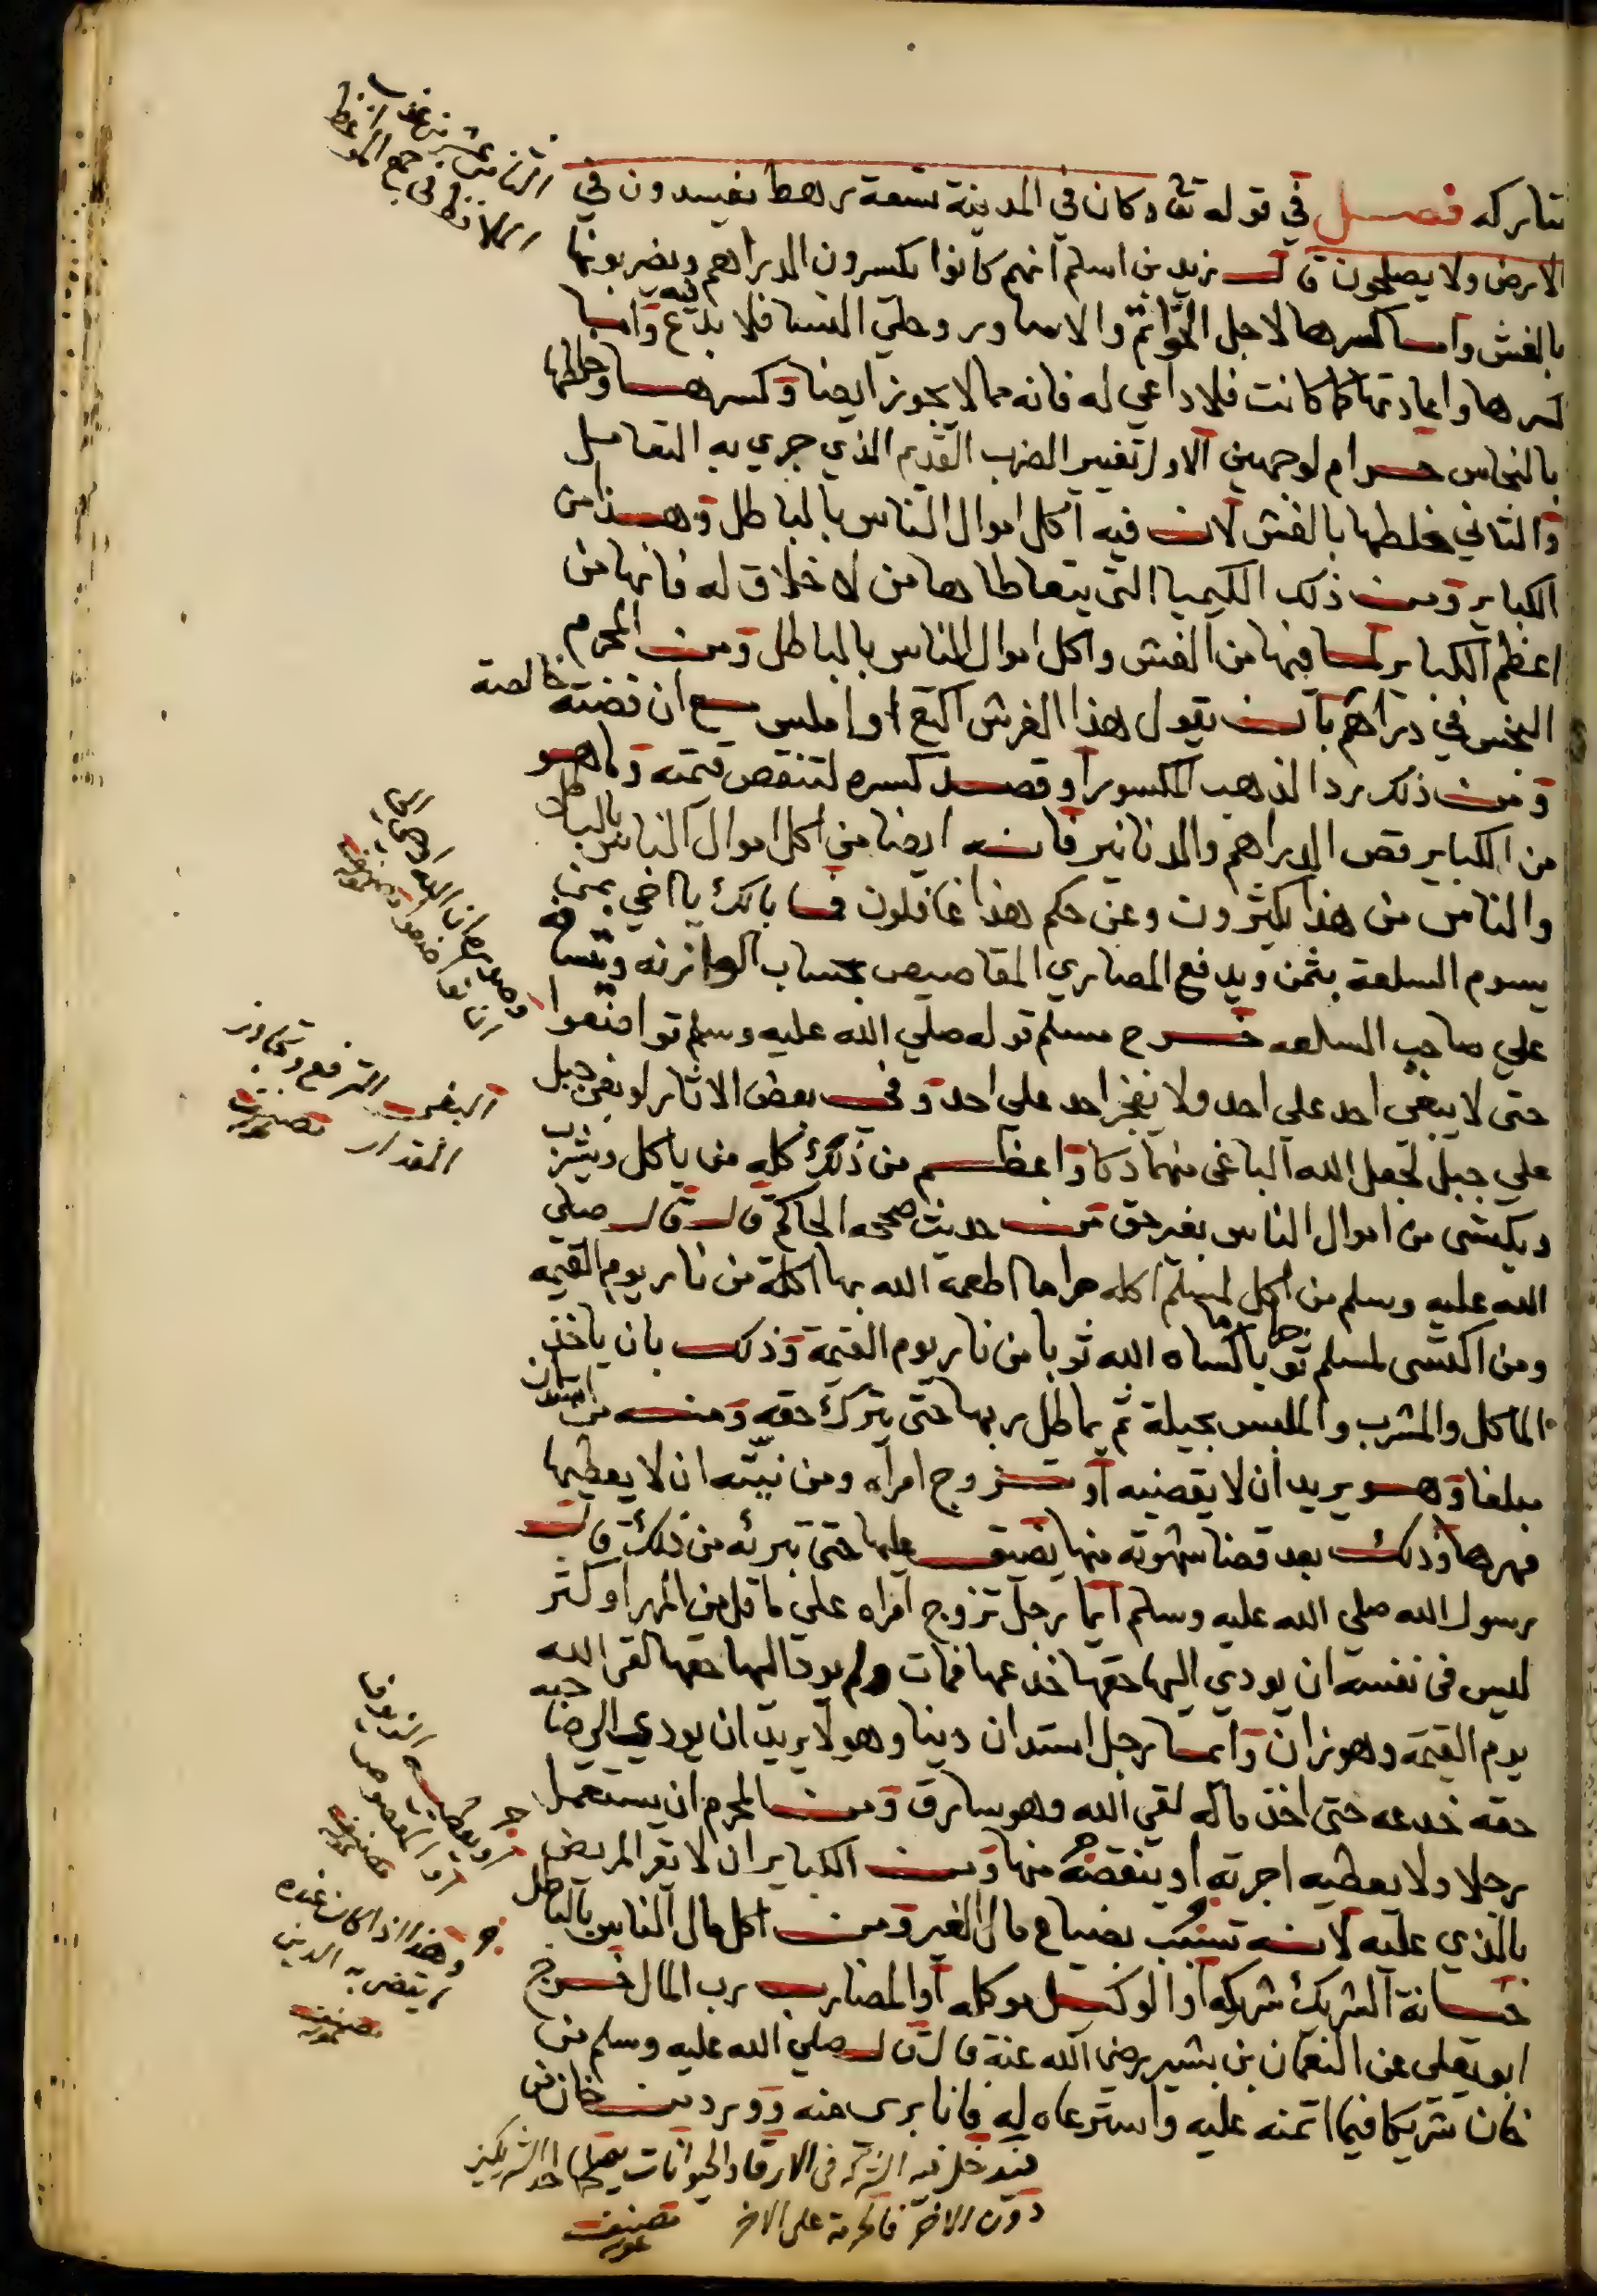 تتاركه فصل في قوله تعا وكان في المدينة تسعة رهط يفسدون في
الارض ولا يصلحون قال زيد بن اسلم انهم كانوا يكسرون الدراهم ويضربونها
بالغش واما كسرها لاجل الخواتم والاساور وحلي النسا فلا بدع فيه واما
كسرها واعادتها كما كانت فلا داعي له فانه مما لا يجوز ايضا وكسرها وخلطها
بالنحاس حرام لوجهين الاول تغيير الضرب القديم الذي جري به التعامل
والثاني خلطها بالغش لان فيه اكل اموال الناس بالباطل وهذا من
الكباير ومن ذلك الكيميا التي يتعاطاها من لا خلاق له فانها من
اعظم الكباير لما فيها من الغش واكل اموال الناس بالباطل ومن المحرم
البخس في دراهم بان يقول هذا القرش اكتع او املس مع ان فضته خالصة
ومن ذلك رد الذهب المكسور او قصد كسره لتنقص قيمته وما هو
من الكباير قص الدراهم والدنانير فانه ايضا من اكل اموال الناس بالباطل
والناس من هذا يكثرون وعن حكم هذا غافلون فما بالك يا اخي بمن
يسوم السلعة بثمن ويدفع المصاري المقاصيص بحساب الوازنه ويتسافه
علي صاحب السلعه خرج مسلم قوله صلي الله عليه وسلم تواضعوا
حتى لا يبغى احد علي احد ولا يفخر احد علي احد وفي بعض الاثار لو بغى جبل
علي جبل لجعل الله الباغى منهما دكا واعظم من ذلك كله من ياكل ويشرب
ويكتسى من اموال الناس بغير حق من حديث صححه الحاكم قال قال صلي
الله عليه وسلم من اكل لمسلم اكله حراما اطعمه الله بها اكلة من نار يوم القيمه
ومن اكتسى لمسلم ثوبا حراما كساه الله ثوبا من نار يوم القيمة وذلك بان ياخذ
الماكل والمشرب والملبس بحيلة ثم يماطل ربها حتى يترك حقه ومنه من استدان
مبلغا وهو يريد ان لا يقضيه او تزوج امراه ومن نيته ان لا يعطيها
مهرها وذلك بعد قضا شهوته منها يضيق عليها حتى تبرئه من ذلك قال
رسول الله صلي الله عليه وسلم ايما رجل تزوج امراه علي ما قل من المهر او كثر
ليس في نفسه ان يودي اليها حقها خدعها فمات ولم يود اليها حقها لقي الله
يوم القيمة وهو زان وايما رجل استدان دينا وهو لا يريد ان يودي الي صاحبه
حقه خدعه حتى اخذ ماله لقي الله وهو سارق ومن المحرم ان يستعمل
رجلا ولا يعطيه اجرته او ينقصه منها ومن الكباير ان لا يقر المريض
بالذي عليه لانه تسبب بضياع مال الغير ومن اكل مال الناس بالباطل
خيانة الشريك شريكه او الوكيل موكله او المضارب رب المال خرج
ابو يعلى عن النعمان بن بشير رضى الله عنه قال قال صلي الله عليه وسلم من
خان شريكا فيما اتمنه عليه واسترعاه له فانا برى منه وورد من خان من
الثامن عشر
في جمع المواعظ
وصدره ان الله اوحى الي
ان تواضعوا
البغى الترفع وتجاوز
المقدار
او يعطيه الزيوف
او المقصوص
وهذا اذا كان عنده
ما يقضي به الدين
فيدخل فيه الشركه في الارقا والحيوانات احد الشريكين
دون الاخر فالحرمة على الاخر